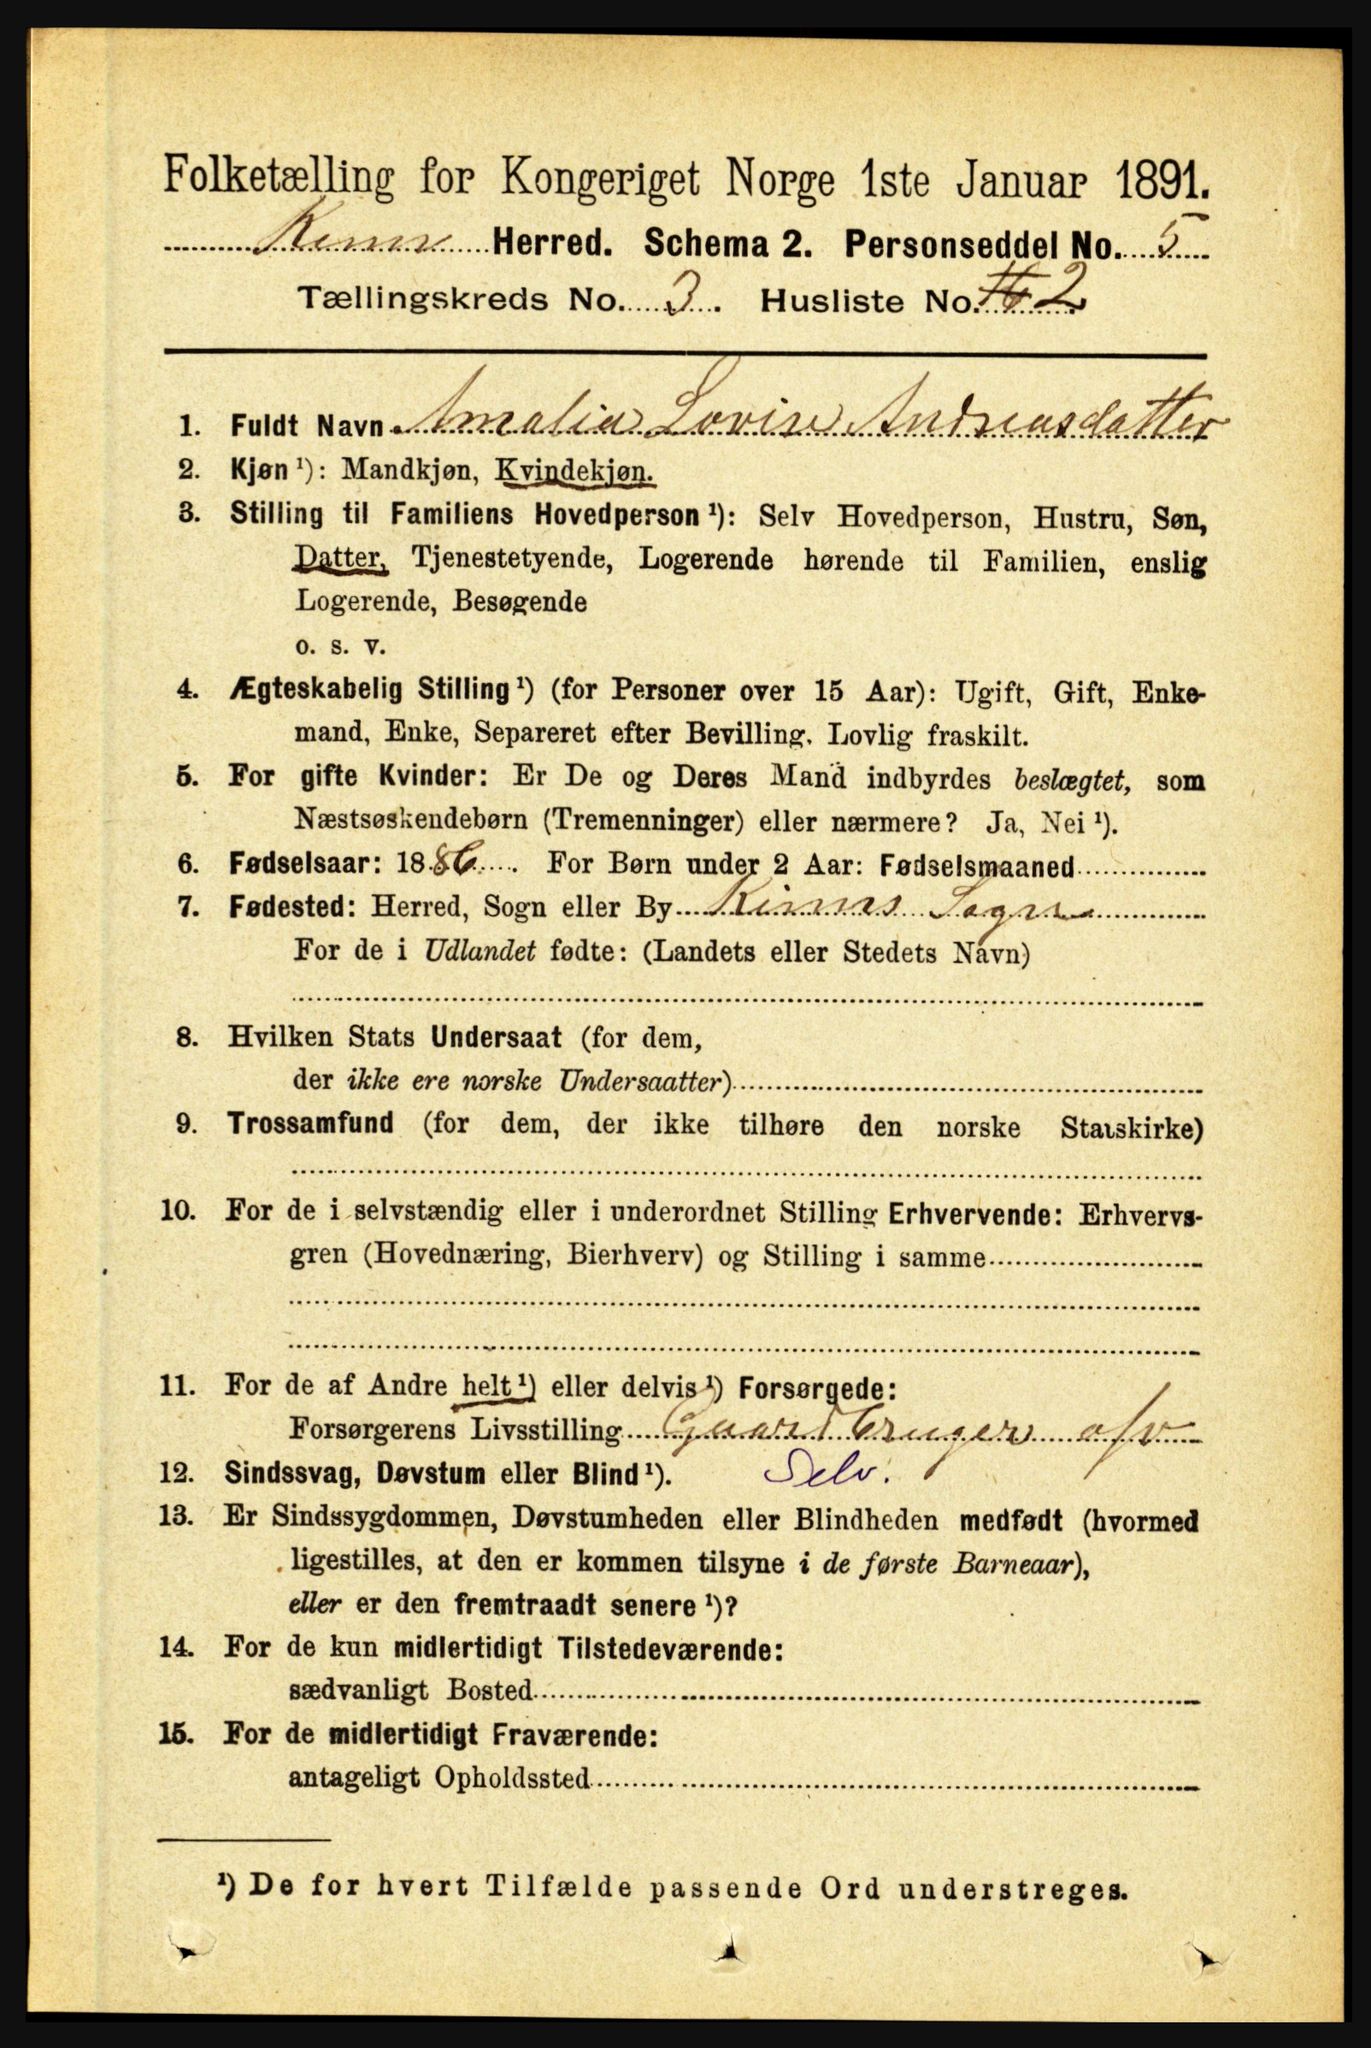 Folketælling for Kongeriget Norge 1ste Januar 1891.
Kinn Herred. Schema 2. Personseddel No. 5
Tællingskreds No. 3. Husliste No. 2
1. Fuldt Navn Amalia Lovise Andreasdatter
2. Kjøn ¹): Mandkjøn, Kvindekjøn.
3. Stilling til Familiens Hovedperson ¹): Selv Hovedperson, Hustru, Søn,
Datter, Tjenestetyende, Logerende hørende til Familien, enslig
Logerende, Besøgende
o. s. v.
4. Ægteskabelig Stilling ¹) (for Personer over 15 Aar): Ugift, Gift, Enke-
mand, Enke, Separeret efter Bevilling. Lovlig fraskilt.
5. For gifte Kvinder: Er De og Deres Mand indbyrdes beslægtet, som
Næstsøskendebørn (Tremenninger) eller nærmere? Ja, Nei ¹).
6. Fødselsaar: 1886. For Børn under 2 Aar: Fødselsmaaned
7. Fødested: Herred, Sogn eller By Kinns Sogn
For de i Udlandet fødte: (Landets eller Stedets Navn)
8. Hvilken Stats Undersaat (for dem,
der ikke ere norske Undersaatter)
9. Trossamfund (for dem, der ikke tilhøre den norske Statskirke)
10. For de i selvstændig eller i underordnet Stilling Erhvervende: Erhvervs-
gren (Hovednæring, Bierhverv) og Stilling i samme
11. For de af Andre helt ¹) eller delvis ¹) Forsørgede:
Forsørgerens Livsstilling Gaardbruger
12. Sindssvag, Døvstum eller Blind ¹). Selv.
13. Er Sindssygdommen, Døvstumheden eller Blindheden medfødt (hvormed
ligestilles, at den er kommen tilsyne i de første Barneaar),
eller er den fremtraadt senere ¹)?
14. For de kun midlertidigt Tilstedeværende:
sædvanligt Bosted
15. For de midlertidigt Fraværende:
antageligt Opholdssted
¹) De for hvert Tilfælde passende Ord understreges.